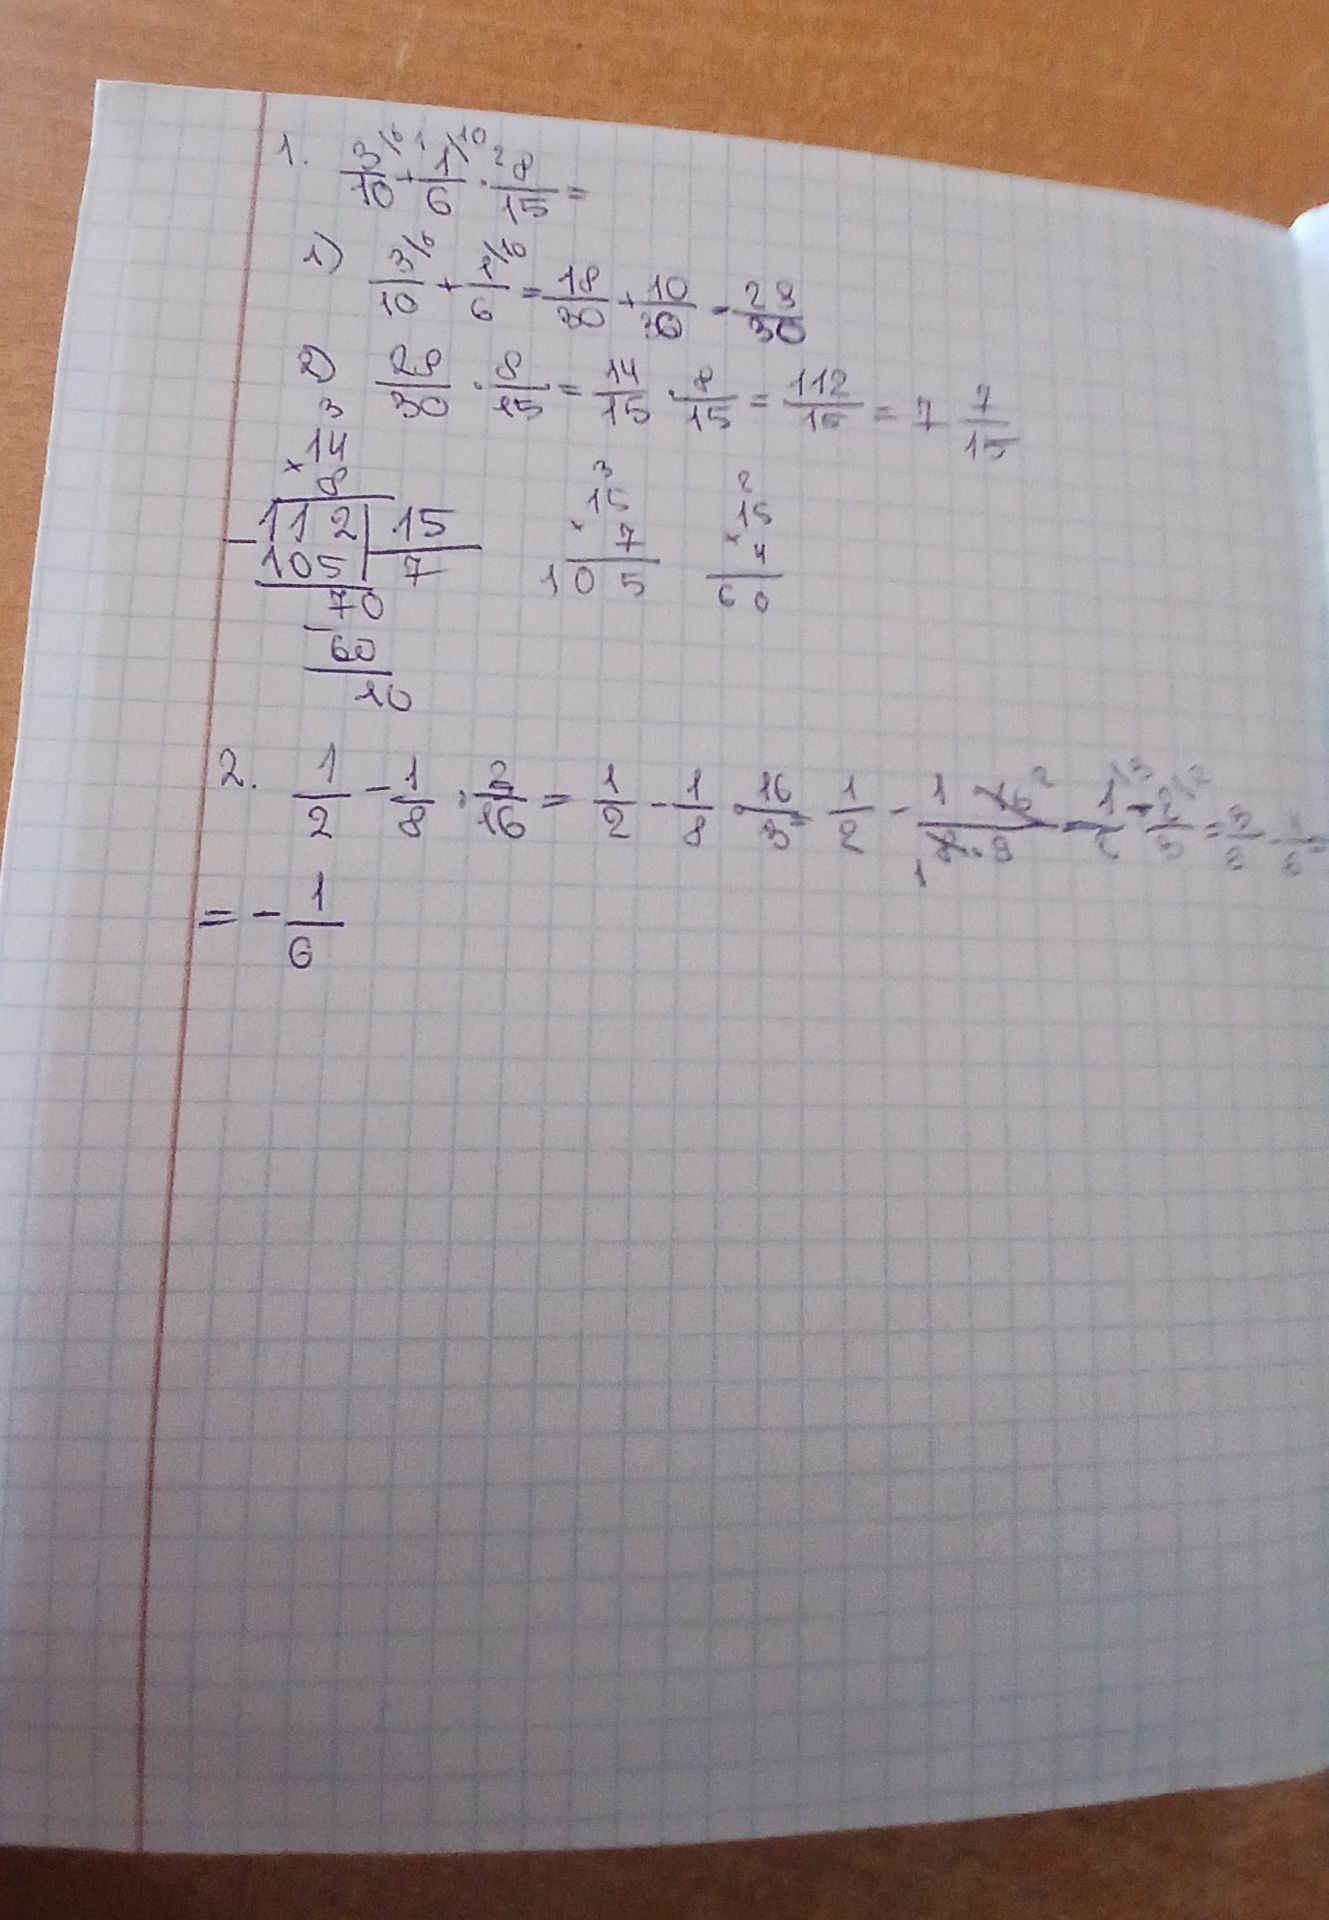 1. 3/10 /6 + 1/6 /10 · 8/15 =
1 2
1) 3/10 /6 + 1/6 /10 = 18/30 + 10/30 = 28/30
2) 28/30 · 8/15 = 14/15 · 8/15 = 112/15 = 7 7/15
3
×14
8
−112 | 15
105 | 7
−70
60
10
3
15
× 7
105
2
15
× 4
60
2. 1/2 − 1/8 : 3/16 = 1/2 − 1/8 · 16/3 = 1/2 − 1 · 16 2 / 1 8 · 3 = 1/2 /3 − 2/3 /2 = 3/6 −
= − 1/6